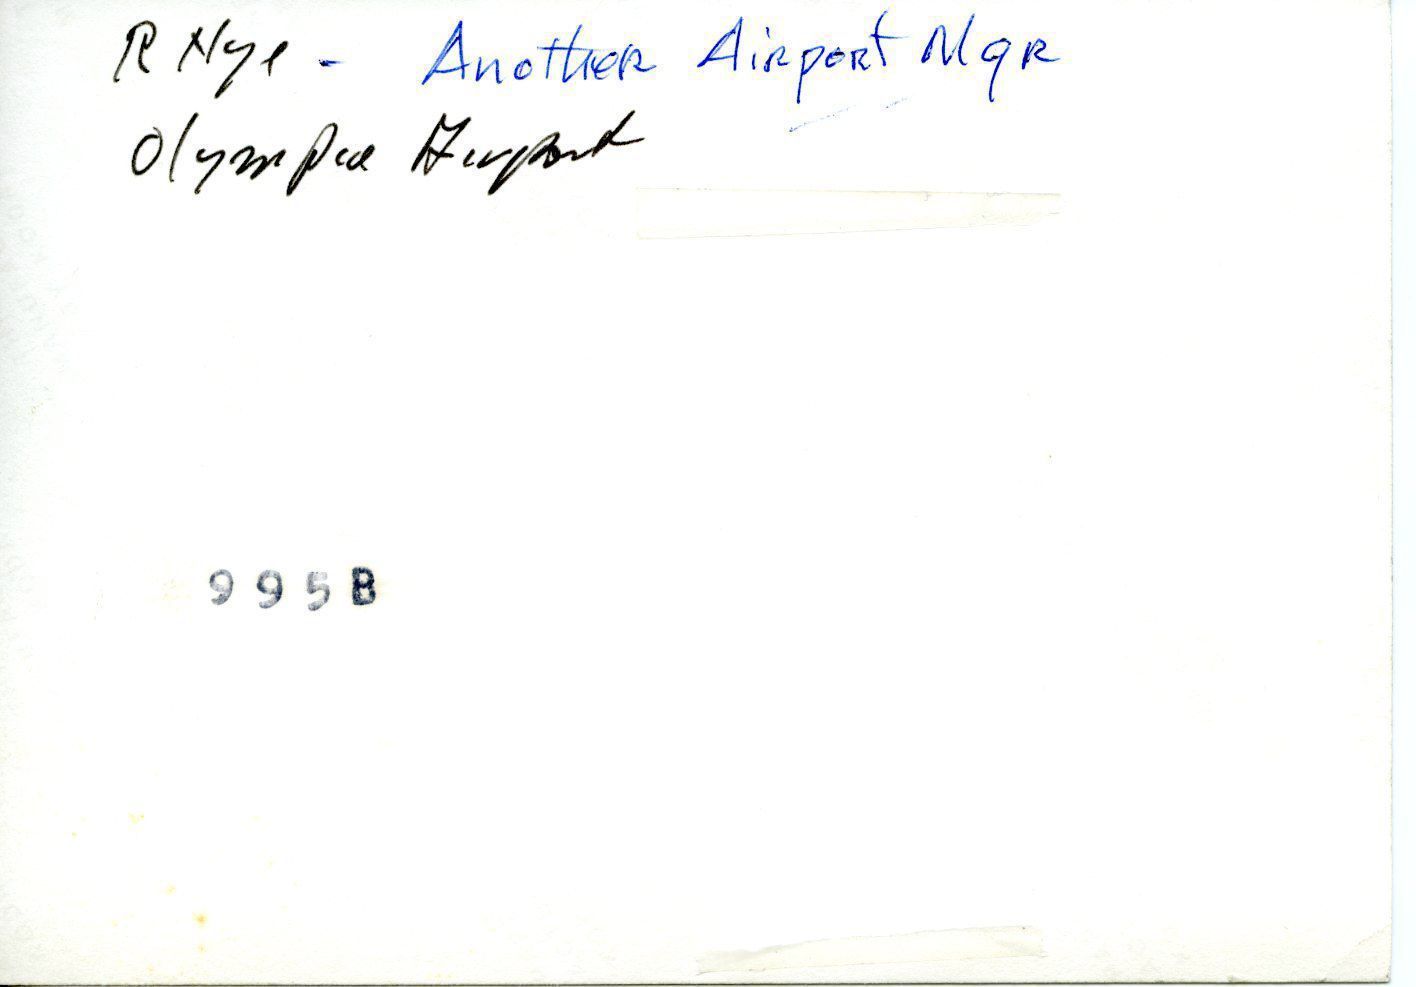 R Nye - Another Airport Mgr
Olympia Airport
995B